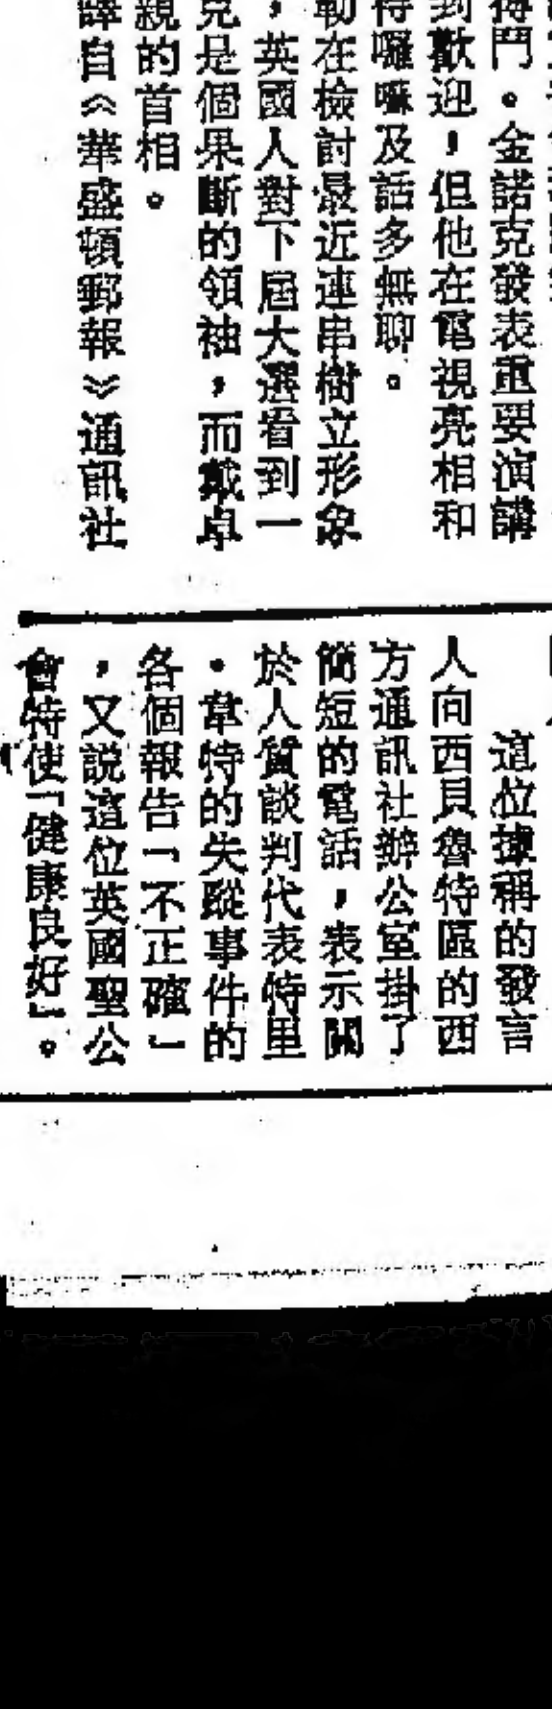 搏鬥。金諾克發表重要演講
到歡迎，但他在電視亮相和
得囉嗦及話多無聊。
勒在檢討最近連串樹立形象
，英國人對下屆大選看到一
克是個果斷的領袖，而戴卓
親的首相。
譯自《華盛頓郵報》通訊社
這位據稱的發言
人向西貝魯特區的西
方通訊社辦公室掛了
簡短的電話，表示關
於人質談判代表特里
・韋特的失蹤事件的
各個報告「不正確」
，又說這位英國聖公
會特使「健康良好」。